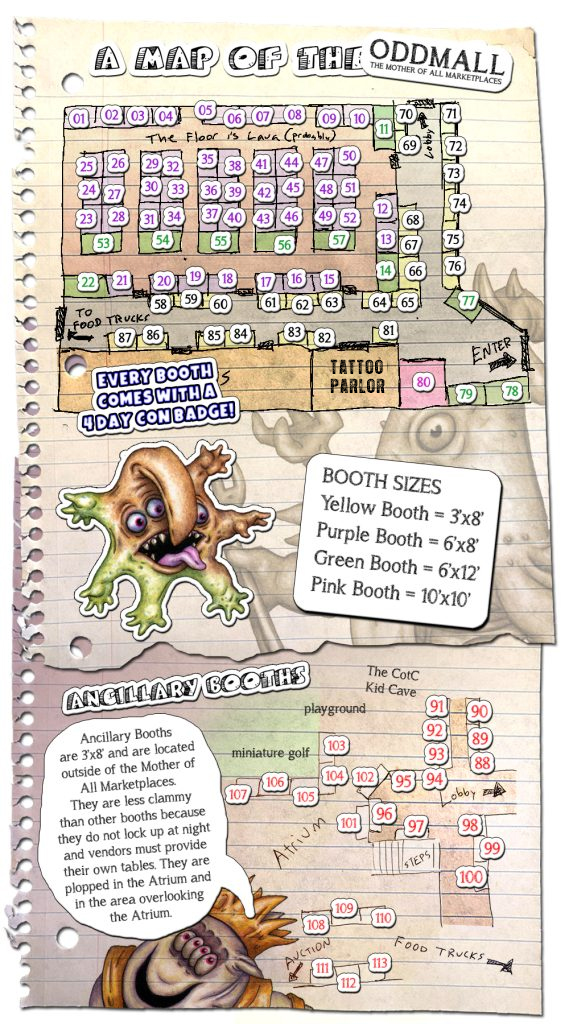 A MAP OF THE ODDMALL
THE MOTHER OF ALL MARKETPLACES
01 02 03 04 05 06 07 08 09 10 11 70 71
The Floor is Lava (probably)
Lobby
69 72
25 26 29 32 35 38 41 44 47 50 73
24 27 30 33 36 39 42 45 48 51 12 74
23 28 31 34 37 40 43 46 49 52 68
53 54 55 56 57 13 67 75
22 21 20 19 18 17 16 15 14 66 76
58 59 60 61 62 63 64 65 77
TO
FOOD TRUCKS
87 86 85 84 83 82 81
ENTER
EVERY BOOTH
COMES WITH A
4 DAY CON BADGE!
S
TATTOO
PARLOR
80 79 78
BOOTH SIZES
Yellow Booth = 3'x8'
Purple Booth = 6'x8'
Green Booth = 6'x12'
Pink Booth = 10'x10'
ANCILLARY BOOTHS
Ancillary Booths
are 3'x8' and are located
outside of the Mother of
All Marketplaces.
They are less clammy
than other booths because
they do not lock up at night
and vendors must provide
their own tables. They are
plopped in the Atrium and
in the area overlooking
the Atrium.
The CotC
Kid Cave
playground
miniature golf
91 90
92 89
103 93 88
107 106 105 104 102 95 94
Lobby
Atrium
101 96 97 98
STEPS
99
100
108 109 110
AUCTION
FOOD TRUCKS
111 112 113